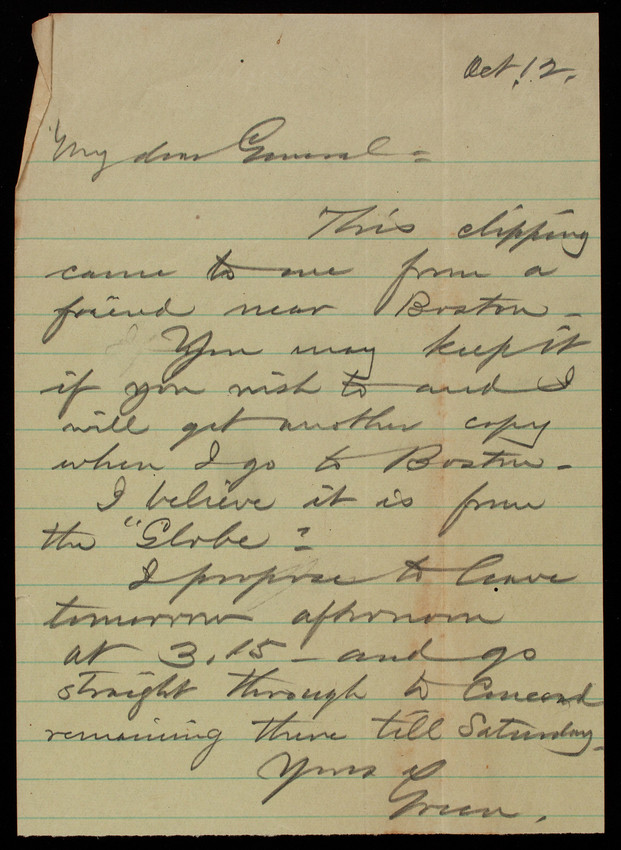 Oct. 12.
My dear General =
This clipping
came to me from a
friend near Boston -
You may keep it
if you wish to and I
will get another copy
when I go to Boston -
I believe it is from
the "Globe"-
I propose to leave
tomorrow afternoon
at 3.15 - and go
straight through to Concord
remaining there till Saturday -
Yours
Green.